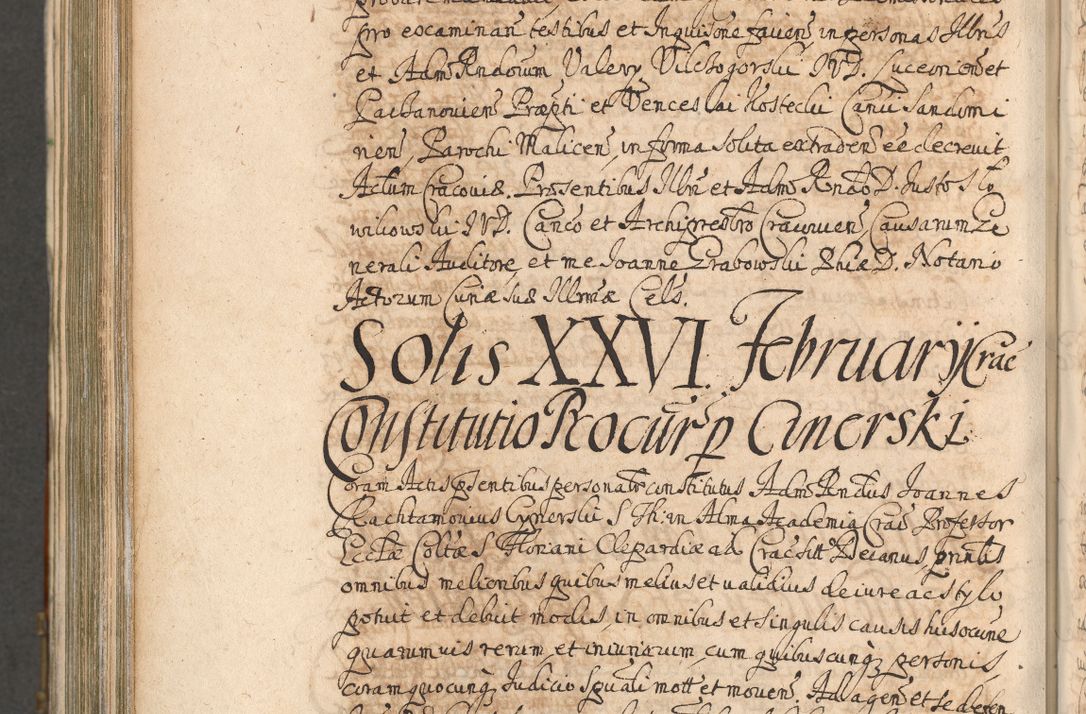 pro examinan testibus et Inquisone faciens in personas Illris
et Adm Rndorum Valery Vilchogorski IVD. Luceorien et
Pachanovien Præpti et Venceslai Kostecki Canci Sandomi
rien, Parochi Malicen, in forma solita extraden ee decrevit
Actum Cracoviæ. Præsentibus Illri et Adm Rndo D. Justo Slo
wikowski IVD. Canco et Archipresbro Cracovien, Causarum Ge
nerali Auditore, et me Joanne Grabowski Phiæ D. Notario
Actorum Curiæ suæ Illrmæ Cels.
Solis XXVI. February Crac
Constitutio Procur p Cinerski
Coram Actis psentibus personalr constitutus Adm Rndus Joannes
Rachtamovius Cynerski S Th: in Alma Academia Crac Professor
Ecctæ Colltæ S Floriani Clepardiæ ad Crac sitt Decanus, prinlis
omnibus melioribus quibus melius et validius de iure ac stylo
potuit et debuit modis, in omnibus et singulis causis huiocune
quarumvis rerum et iniuriarum, cum quibuscunq personis,
coram quocunq Judicio Spuali mott et movens. Ad agen et se defen